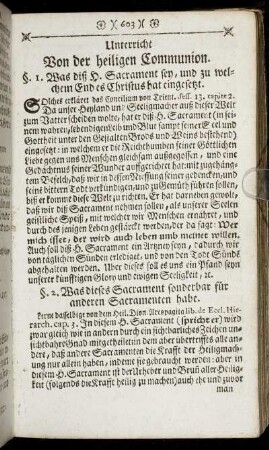 603
Unterricht
Von der heiligen Communion.
§. 1. Was diß H. Sacrament sey, und zu wel-
chem End es Christus hat eingesetzt.
SOlches erkläret das Concilium von Trient. sess. 13. capite 2.
Da unser Heyland und Seeligmacher auß dieser Welt
zum Vatter scheiden wolte, hat er das H. Sacrament (in sei-
nem wahren, lebendigen Leib und Blut sampt seiner Seel und
Gottheit unter den Gestalten Brods und Weins bestehend)
eingesetzt: in welchem er die Reichthumen seiner Göttlichen
Liebe gegen uns Menschen gleichsam außgegossen, und eine
Gedächtnuß seiner Wunder auffgerichtet hat: mit
tem Befelch, daß wir in dessen Niessung seiner gedencken, und
seine bittern Todt verkündigen, und zu Gemüth führen sollen,
biß er komme diese Welt zu richten. Er hat darneben gewolt,
daß wir diß Sacrament nehmen sollen, als unserer Seelen
geistliche Speiß, mit welcher wir Menschen ernähret, und
durch des jenigen Leben gestärcket werden, der da sagt: Wer
mich isset, der wird auch leben umb meinet willen.
Auch soll diß H. Sacrament ein Artzney seyn, dadurch wir
von täglichen Sünden erlediget, und von den Todt Sünden
abgehalten werden. Über dieses soll es uns ein Pfand seyn
unserer künfftigen Glory und ewigen Seeligkeit, ꝛc.
§. 2. Was dieses Sacrament sonderbar für
anderen Sacramenten habe.
Lerne dasselbige von dem Heil. Dion. Areopagita lib. de Eccl. Hie-
rarch. cap. 3. In diesem H. Sacrament (spricht er) wird
zwar gleich wie in andern durch ein sichtbarliches Zeichen un-
sichtbahre Gnad mitgetheilt: in dem aber übertrifft es alle an-
dere, daß andere Sacramenten die Krafft der Heiligmach-
ung nur allein haben, indeme sie gebraucht werden: aber in
diesem Sacrament ist der Urheber und Brunn aller Heilig-
keit (folgends die Krafft heilig zu machen) auch ehe und zuvor
man